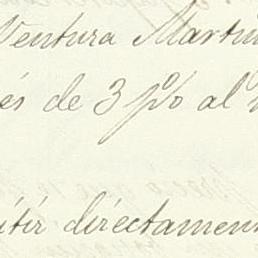 Ventura Martin
és de 3 p% al
itir directament